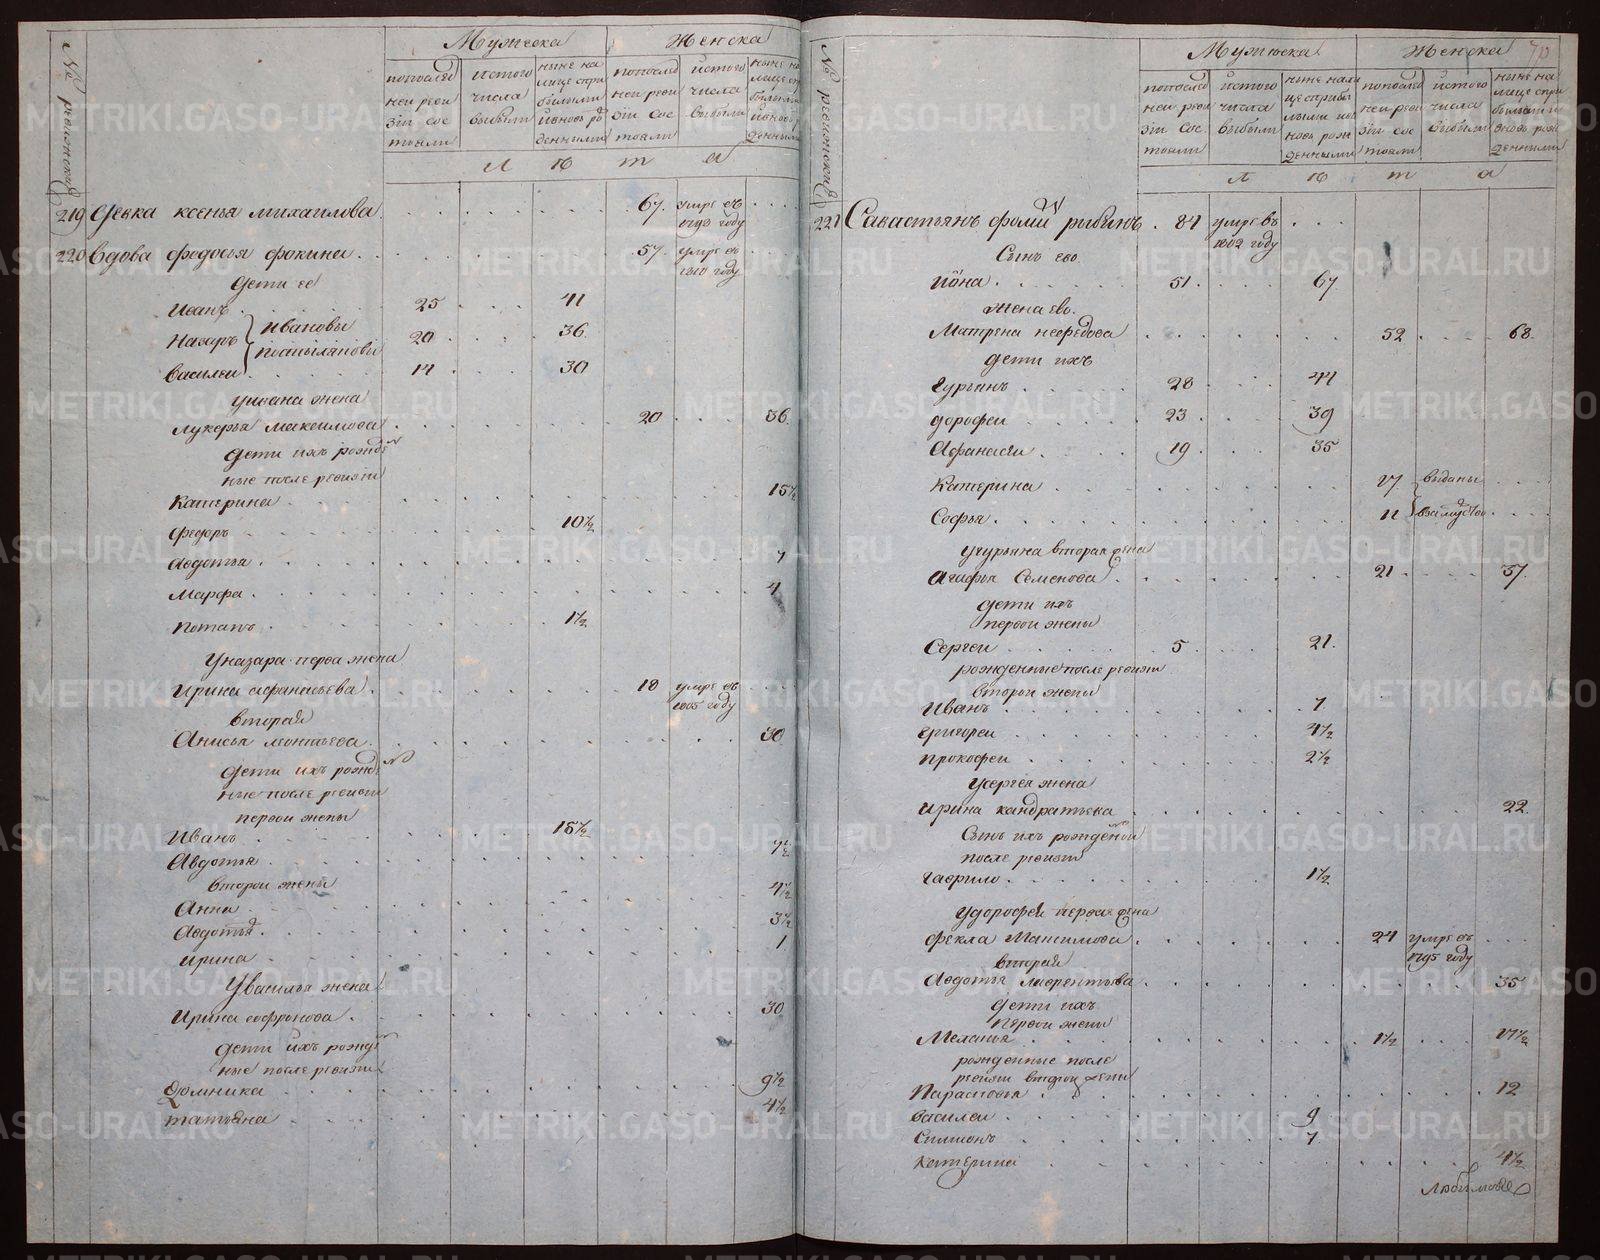 № ревижския
Мужеска
Женска
попослѣд
ней реви
зіи сос
тояли
истого
числа
выбыли
ныне на
лице спри
былыми
и вновь ро
жденными
попослѣд
ней реви
зіи сос
тояли
истого
числа
выбыли
ныне на
лице спри
былыми
и вновь ро
жденными
л ѣ т а
219 Девка ксенья михаилова 67 умре въ
1798 году
220 Вдова федосья фокина 57 умре въ
1810 году
дети ее
Иванъ 25 41
Ивановы
Назаръ 20 36
Василеи 14 30
уивана жена
лукерья максимова 20 36
дети ихъ рожде
ные после ревизіи
Катерина 15½
федоръ 10½
Авдотья 7
Марфа 4
потапъ 1½
Уназара перва жена
Ирина афанасьева 18 умре въ
1805 году
вторая
Анисья леонтьева 30
дети ихъ рожде
ные после ревизіи
первои жены
Иванъ 15½
Авдотья 7½
второи жены
Анна 4½
Авдотья 3½
ирина 1
Увасилья жена
Ирина софронова 30
дети ихъ рожде
ные после ревизіи
Домника 9½
татьяна 4½
70
№ ревижския
Мужеска
Женска
попослѣд
ней реви
зіи сос
тояли
истого
числа
выбыли
ныне нали
це сприбы
лыми ив
новь рож
денными
попослѣд
ней реви
зіи сос
тояли
истого
числа
выбыли
ныне на
лице спри
былыми и
вновь рож
денными
л ѣ т а
221 Савастьянъ фомин рябинъ 81 умре въ
1802 году
Сынъ ево
Иона 51 67
жена ево
Матрена нефедова 52 68
дети ихъ
Гурьянъ 28 44
дорофеи 23 39
Афанасеи 19 35
Катерина 17 выданы
Софья 11 взамуство
Угурьяна вторая жена
Агафья Семенова 21 37
дети ихъ
первои жены
Сергеи 5 21
рожденные после ревизіи
второи жены
Иванъ 7
григореи 4½
прокофеи 2½
Усергея жена
ирина кандратьева 22
Сынъ ихъ рожденои
после ревизіи
гаврило 1½
Удорофея первая жена
фекла Максимова 24 умре въ
1795 году
вторая
Авдотья лаврентьева 35
дети ихъ
первои жены
Меланья 1½ 17½
рожденные после
ревизіи второи жены
Парасковья 12
василеи 9
Симионъ 7
катерина 4½